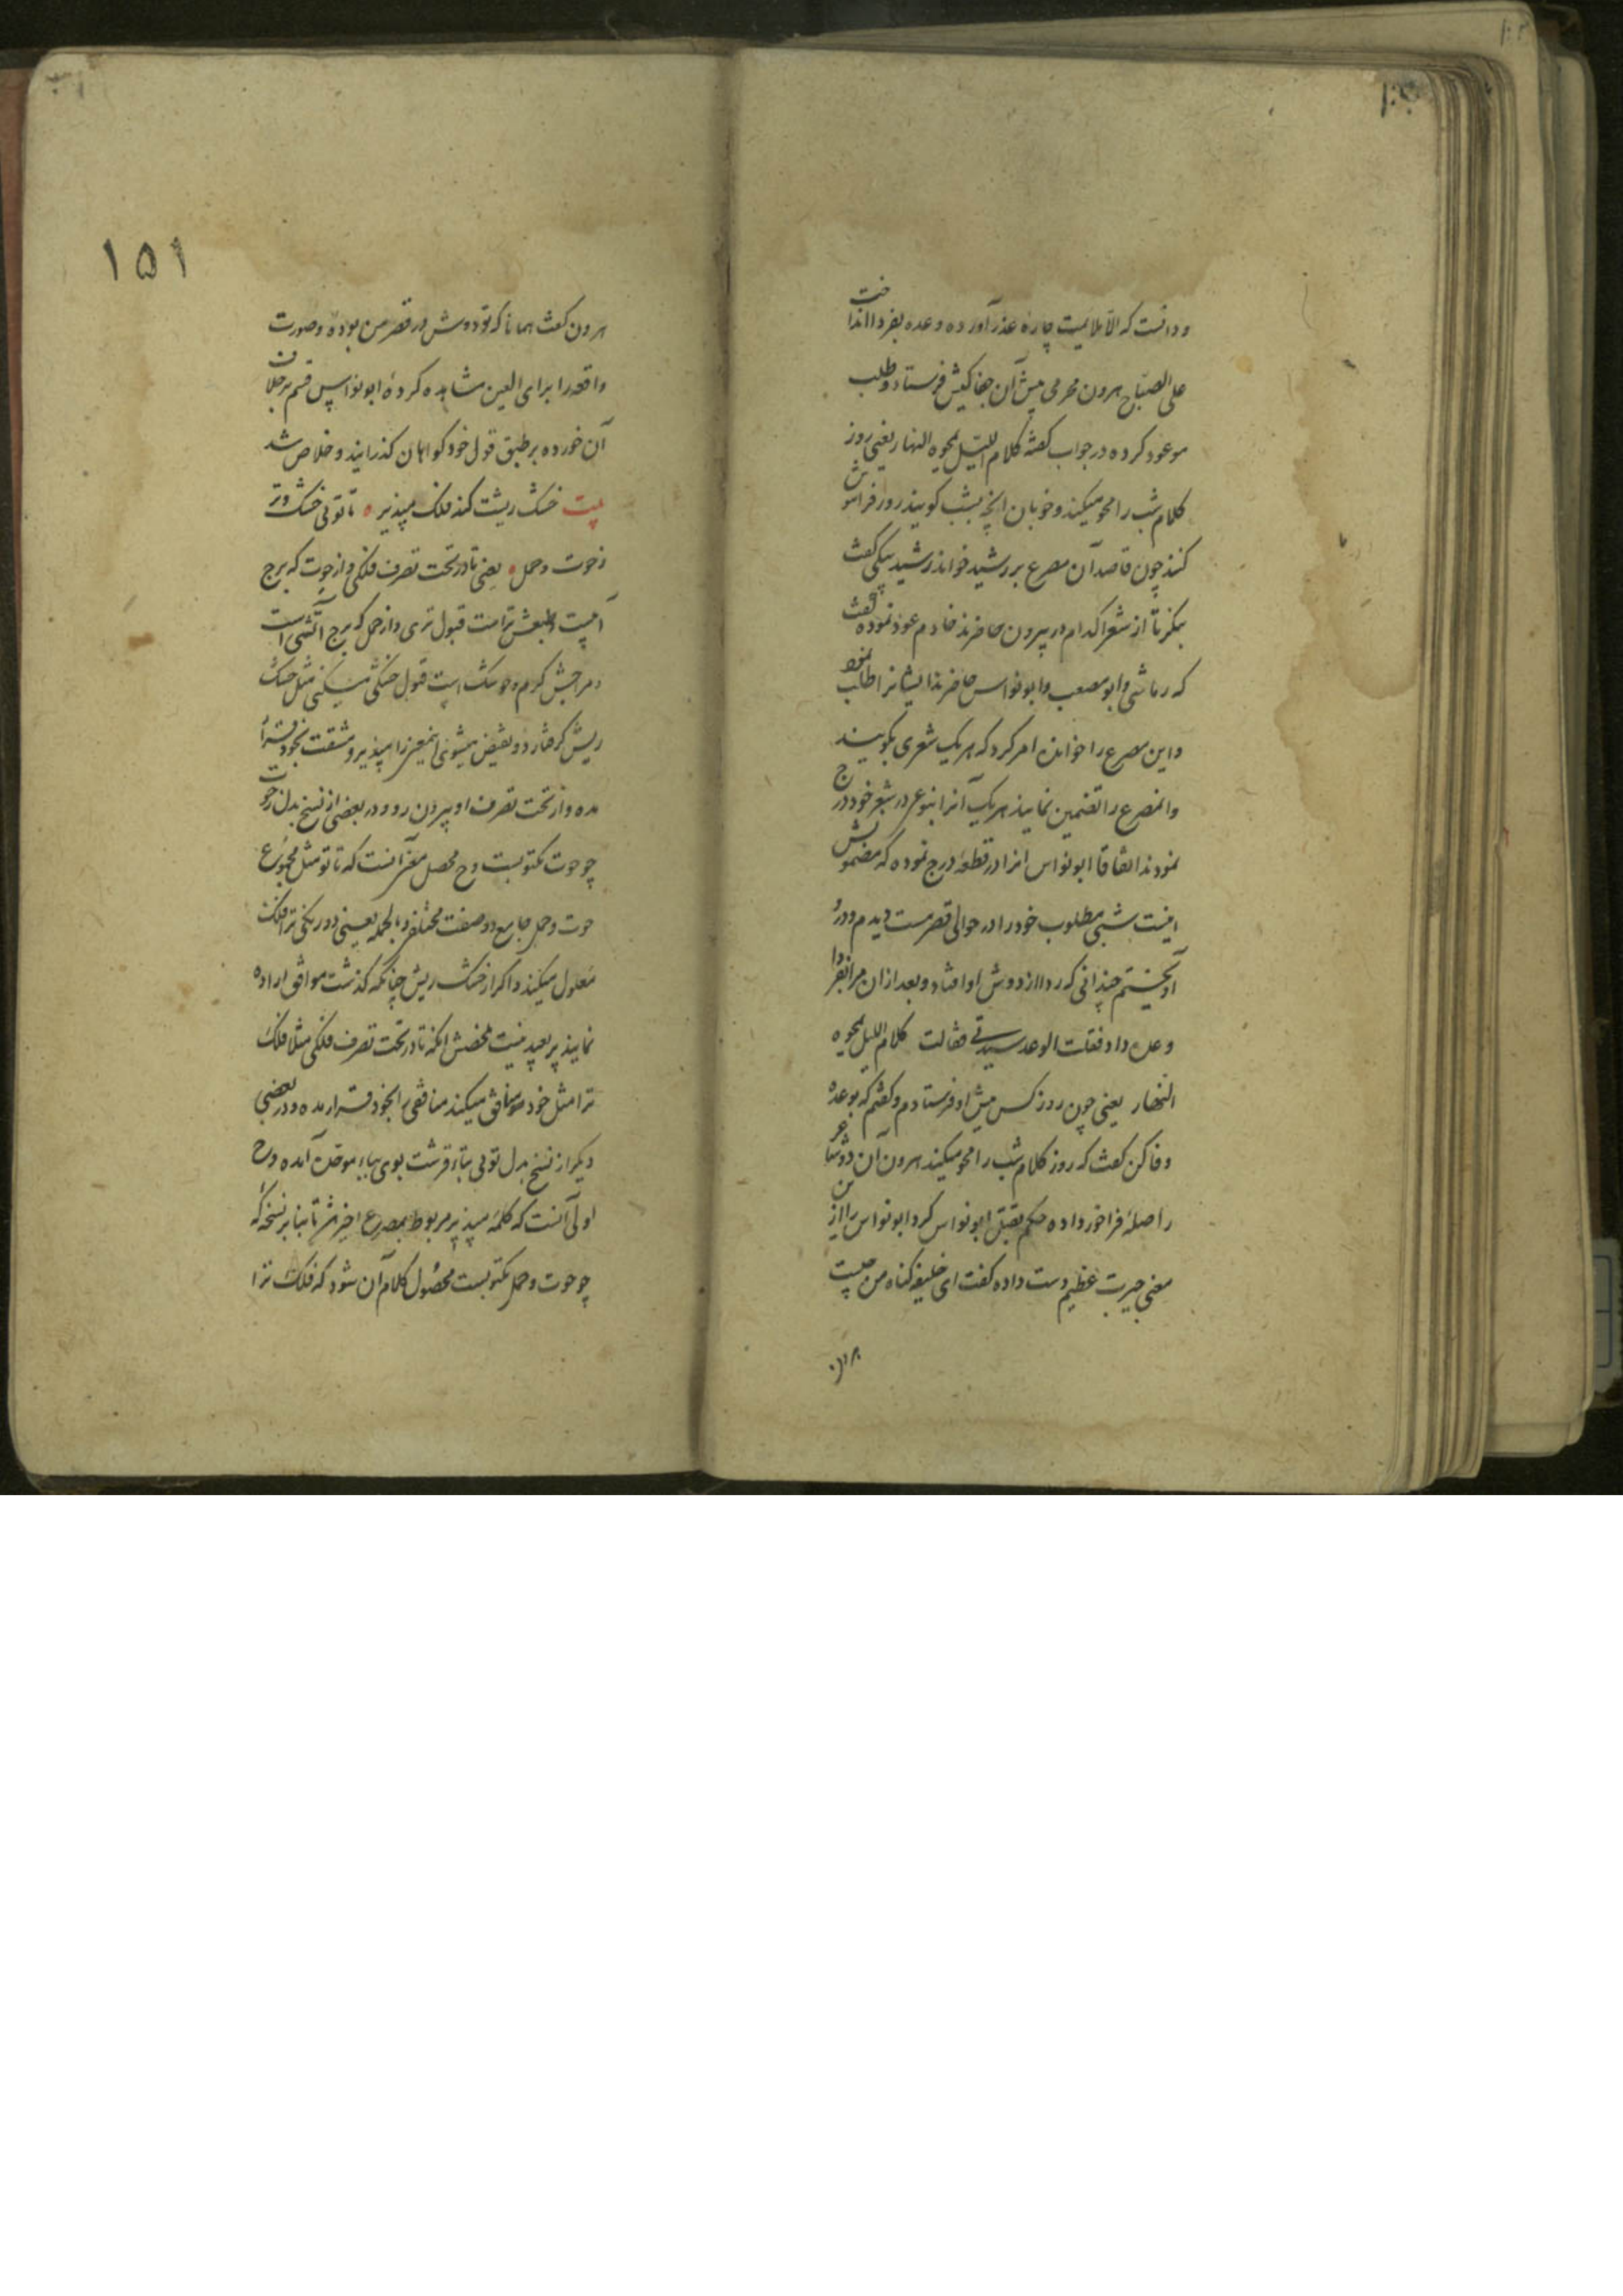 ودانست که الا بملایمت چاره عذر آورده وعده بفردا انداخت
علی الصباح هرون محرمی پیش آن جفاکیش فرستاد وطلب
موعود کرده در جواب گفته کلام اللیل یمحوه النهار یعنی روز
کلام شب را محو میکند وخوبان انچه بشب کویند روز فراموش
کنند چون قاصد آن مصرع بر رشید خواند رشید بیکی گفت
بنکر تا از شعرا کدام در بیرون حاضرند خادم عود نموده گفت
که رقاشی وابو مصعب وابونواس حاضرند ایشانرا طلب نمود
واین مصرع را خوانده امر کرد که هر یک شعری بکویند
وانمصرع را تضمین نمایند هر یک آنرا بنوعی در شعر خود درج
نمودند اتفاقا ابونواس انرا در قطعه درج نموده که مضمونش
اینست شبی مطلوب خود را در حوالی قصر مست دیدم ودرو
آویختم چندانی که ردا از دوش او افتاد وبعد ازان مرا بفردا
وعده داد فقلت الوعد سیدتی فقالت کلام اللیل یمحوه
النهار یعنی چون روز کس پیش او فرستادم وگفتم که بوعده
وفا کن گفت که روز کلام شب را محو میکند هرون آن دو شاعر
را صله فراخور داده حکم بقتل ابونواس کرد ابونواس را از این
معنی حیرت عظیم دست داده گفت ای خلیفه گناه من چیست
هرون
١٥١
هرون گفت همانا که تو دوش در قصر من بوده وصورت
واقعه را برای العین مشاهده کرده ابونواس قسم بر خلاف
آن خورده بر طبق قول خود کواهان گذرانید وخلاص شد
بیت خشک ریشت کند فلک مپذیر • تا توئی خشک وتر
ز حوت وحمل • یعنی تا در تحت تصرف فلکی واز حوت که برج
آبیست وطبعش تراست قبول تری واز حمل که برج آتشی است
ومزاجش کرم وخشک است قبول خشکی میکنی مثل خشک
ریش گرفتار دو نقیض میشوی اینمعنی را مپذیر ومشقت بخود قرار
مده واز تحت تصرف او بیرون رو ودر بعضی از نسخ بدل ز حوت
چو حوت مکتوبست وح محصل معنی آنست که تا تو مثل مجموع
حوت وحمل جامع دو صفت مختلفی وبالجمله یعنی دو رنگی ترا فلک
معلول میکند واکر از خشک ریش چنانکه گذشت موافق اراده
نمایند پر بعید نیست ملخصش انکه تا در تحت تصرف فلکی مثلا فلک
ترا مثل خود منافق میکند منافقی را بخود قرار مده ودر بعضی
دیکر از نسخ بدل توئی بتاء قرشت بوی بباء موحده آمده وح
اولی آنست که کلمه مپذیر مربوط بمصرع اخیر باشد تا بنابر نسخه که
چو حوت وحمل مکتوبست محصول کلام آن شود که فلک ترا